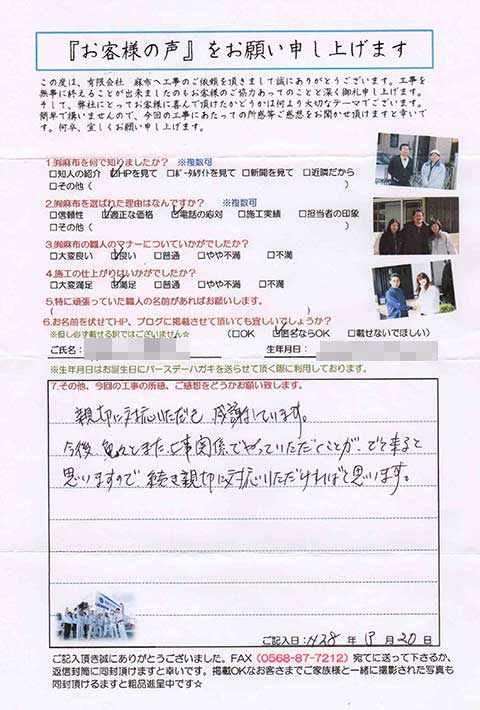 『お客様の声』をお願い申し上げます
この度は、有限会社 麻布へ工事のご依頼を頂きまして誠にありがとうございます。工事を
無事に終えることが出来ましたのもお客様のご協力あってのことと深く御礼申し上げます。
そして、弊社にとってお客様に喜んで頂けたかどうかは何より大切なテーマでございます。
簡単で構いませんので、今回の工事にあたっての所感等ご感想をお聞かせ頂けますと幸いで
す。何卒、宜しくお願い申し上げます。
1.㈲麻布を何で知りましたか? ※複数可
□知人の紹介 ☑HPを見て □ポータルサイトを見て □新聞を見て □近隣だから
□その他( )
2.㈲麻布を選ばれた理由はなんですか? ※複数可
□信頼性 ☑適正な価格 ☑電話の応対 □施工実績 □担当者の印象
□その他( )
3.㈲麻布の職人のマナーについていかがでしたか?
□大変良い ☑良い □普通 □やや不満 □不満
4.施工の仕上がりはいかがでしたか?
□大変満足 ☑満足 □普通 □やや不満 □不満
5.特に頑張っていた職人の名前があればお願いします。
( )
6.お名前を伏せてHP、ブログに掲載させて頂いても宜しいでしょうか?
※但し必ず載せる訳ではございません☆ (□OK ☑匿名ならOK □載せないでほしい)
ご氏名: 生年月日:
※生年月日はお誕生日にバースデーハガキを送らせて頂く際に利用しております。
7.その他、今回の工事の所感、ご感想をどうかお願い致します。
親切に対応いただき 感謝しています。
今後 色々とまた、工事関係でやっていただくことが、でて来ると
思いますので 続き親切に対応いただければと思います。
ご記入日:H28 年 月 20 日
ご記入頂き誠にありがとうございました。FAX(0568-87-7212)宛てに送って下さるか、
返信封筒に同封頂けますと幸いです。掲載OKなお客さまでご家族様と一緒に撮影された写真も
同封頂けるますと粗品進呈中です☆